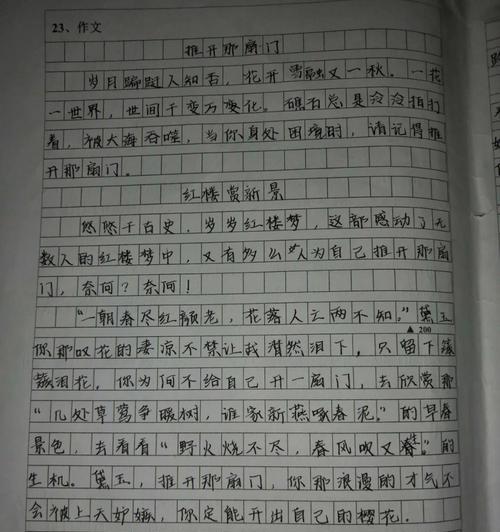 23、作文
推开那扇门
岁月蹁跹人知否，花开雪融又一秋。一花
一世界，世间千变万变化。礁石总是泠泠拍打
着，被大海吞噬，当你身处困境时，请记得推
开那扇门。
红楼赏新景
悠悠千古史，岁岁红楼梦，这部感动了无
数人的红楼梦中，又有多么少人为自己推开那扇
门，奈何？奈何！
“一朝春尽红颜老，花落人亡两不知。”黛玉
▲200
你那叹花的凄凉不禁让我潸然泪下，只留下簇
簇泪花，你为何不给自己开一扇门，去欣赏那
“几处草莺争暖树，谁家新燕啄春泥”的早春
景色，去看看“野火烧不尽，春风吹又春”的
生机。黛玉，推开那扇门，你那浪漫的才气不
会被上天妒嫉，你定能开出自己的樱花.